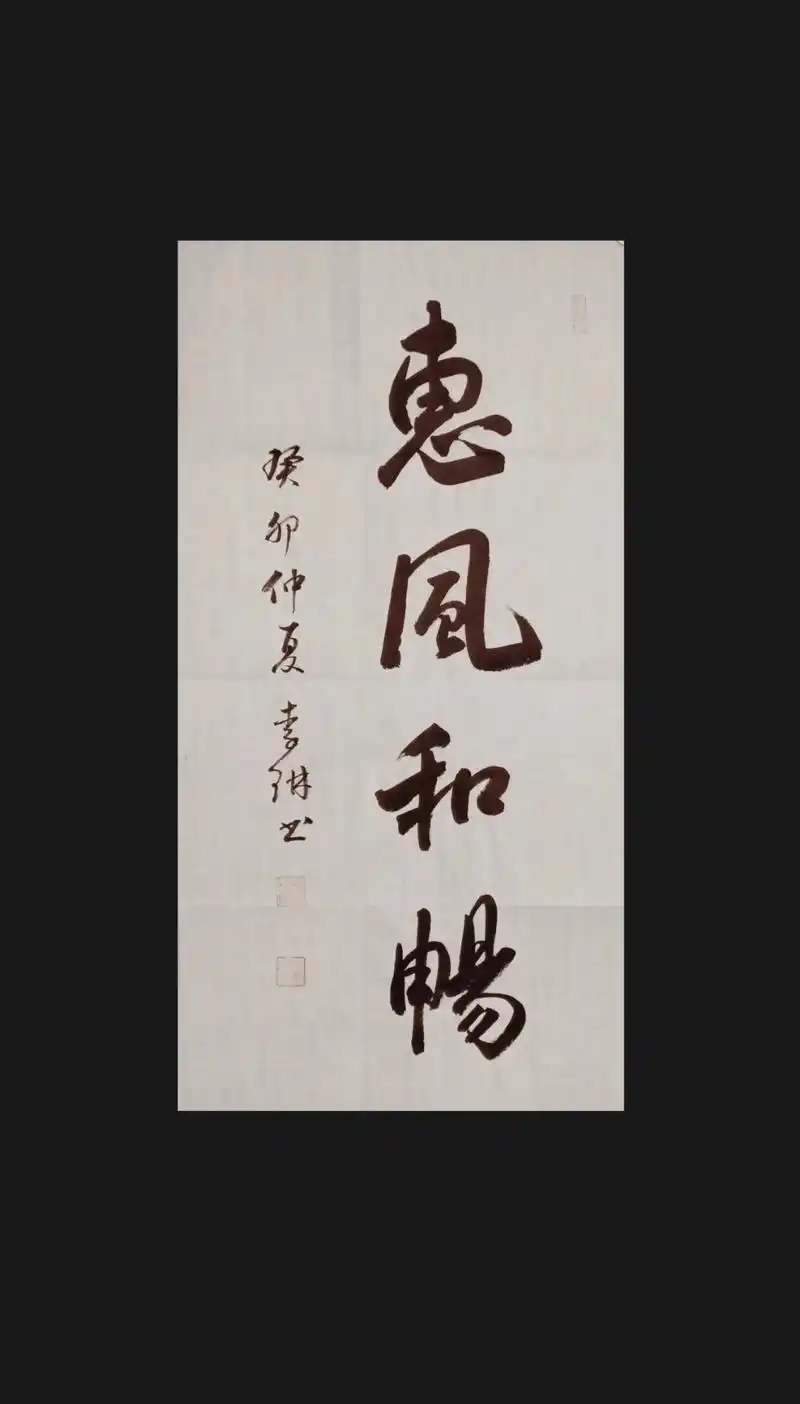 惠風和暢
癸卯仲夏李琳书